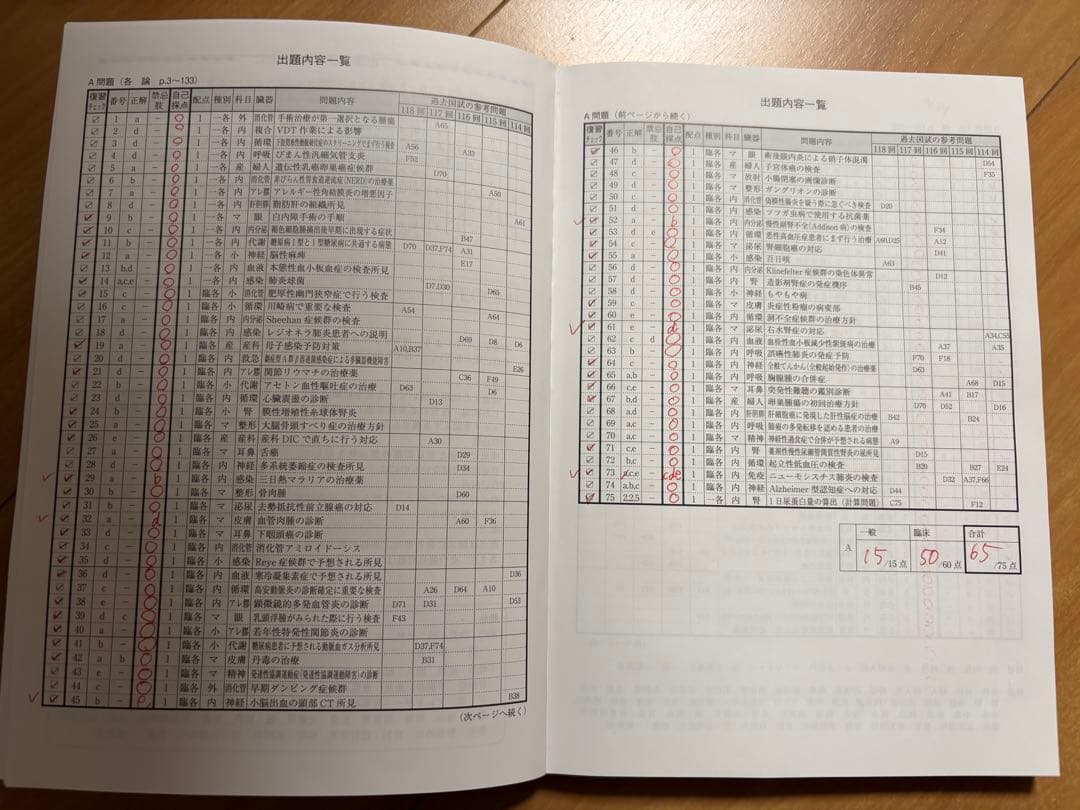 出題内容一覧
A 問題（各 論 p.3〜133）
復習チェック 番号 正解 禁忌肢 自己採点 配点 種別 科目 臓器 問題内容 過去国試の参考問題
118回 117回 116回 115回 114回
1 a － 1 一各 外 消化管 手術治療が第一選択となる腫瘍 A65
2 d － 1 一各 内 複合 VDT作業による影響
3 d － 1 一各 内 循環 A56 A33
4 d － 1 一各 内 呼吸 びまん性汎細気管支炎 F52
5 a － 1 一各 産 婦人 遺伝性乳癌卵巣癌症候群 D70
6 b － 1 一各 内 消化管 非びらん性胃食道逆流症(NERD)の治療薬 A50
7 a － 1 一各 内 アレ膠 アレルギー性角結膜炎の増悪因子
8 d － 1 一各 内 肝胆膵 脂肪肝の組織所見
9 c － 1 一各 マ 眼 白内障手術の手順 A61
10 c － 1 一各 内 内分泌 褐色細胞腫摘出後早期に出現する症状 B47
11 b － 1 一各 内 代謝 糖尿病1型と1型糖尿病に共通する病態 D70 D37,F74 A31
12 a － 1 一各 小 神経 脳性麻痺 E17
13 b,d － 1 一各 内 血液 本態性血小板血症の検査所見
14 a,c,e － 1 一各 内 感染 肺炎球菌 D7,D30 D65
15 c － 1 臨各 小 消化管 肥厚性幽門狭窄症で行う検査
16 c － 1 臨各 小 循環 川崎病で重要な検査 A54 A64
17 a － 1 臨各 内 内分泌 Sheehan症候群の検査
18 d － 1 臨各 内 感染 レジオネラ肺炎患者への説明 D69 D8 D6
19 a － 1 臨各 産 産科 母子感染予防対策 A10,B37
20 d － 1 臨各 内 救急 劇症型A群β溶連菌感染症による多臓器機能障害 E26
21 d － 1 臨各 内 アレ膠 関節リウマチの治療薬 C36 F49
22 b － 1 臨各 小 代謝 アセトン血性嘔吐症の治療 D63 D6
23 d － 1 臨各 内 循環 心臓震盪の診断 D13
24 b － 1 臨各 小 腎 膜性増殖性糸球体腎炎
25 a － 1 臨各 マ 整形 大腿骨頭すべり症の治療方針
26 e － 1 臨各 産 産科 産科DICで直ちに行う対応 A30
27 a － 1 臨各 マ 耳鼻 舌癌 D29
28 d － 1 臨各 内 神経 多系統萎縮症の検査所見 D34
29 a － b 1 臨各 内 感染 三日熱マラリアの治療薬
30 b － 1 臨各 マ 整形 骨肉腫 D60
31 b － 1 臨各 マ 泌尿 去勢抵抗性前立腺癌の対応 D14
32 a － d 1 臨各 マ 皮膚 血管肉腫の診断 A60 F36
33 d － 1 臨各 マ 耳鼻 下咽頭癌の診断
34 c － 1 臨各 内 消化管 消化管アミロイドーシス
35 d － 1 臨各 小 感染 Reye症候群で予想される所見
36 d － 1 臨各 内 血液 寒冷凝集素症で予想される所見 D36
37 c － 1 臨各 内 循環 高安動脈炎の診断確定に重要な検査 A26 D64 A10
38 e － 1 臨各 内 アレ膠 顕微鏡的多発血管炎の診断 D71 D31 D53
39 d c 1 臨各 マ 眼 乳頭浮腫がみられた際に行う検査 F43
40 a － 1 臨各 小 アレ膠 若年性特発性関節炎の診断
41 b － 1 臨各 小 代謝 糖尿病患者に予想される動脈血ガス分析所見 D37,F74
42 a b 1 臨各 マ 皮膚 丹毒の治療 B31
43 e － 1 臨各 マ 精神 発達性協調運動症(発達性協調運動障害)の診断
44 c － 1 臨各 外 消化管 早期ダンピング症候群
45 b － 1 臨各 内 神経 小脳出血の頭部CT所見 B38
（次ページへ続く）
出題内容一覧
A 問題（前ページから続く）
復習チェック 番号 正解 禁忌肢 自己採点 配点 種別 科目 臓器 問題内容 過去国試の参考問題
118回 117回 116回 115回 114回
46 b － 1 臨各 マ 眼 術後眼内炎による硝子体混濁
47 d － 1 臨各 産 婦人 子宮体癌の検査 D54
48 c － 1 臨各 マ 放射 小腸閉塞の画像診断 F35
49 d － 1 臨各 マ 整形 ガングリオンの診断
50 c － 1 臨各 内 消化管 偽膜性腸炎を疑う際に急ぐべき検査 D20
51 d － 1 臨各 内 感染 ツツガ虫病で使用する抗菌薬
52 a － b 1 臨各 内 内分泌 慢性副腎不全(Addison病)の検査 F34
53 d e 1 臨各 内 循環 悪性高血圧症患者にまず行う治療 A60,D25 A12
54 c － 1 臨各 マ 泌尿 腎細胞癌の対応 D41
55 a － 1 臨各 小 感染 百日咳 A63
56 d － 1 臨各 内 内分泌 Klinefelter症候群の染色体異常 D12
57 d － 1 臨各 内 腎 造影剤腎症の発症機序 B45
58 d － 1 臨各 小 神経 もやもや病
59 c － 1 臨各 マ 皮膚 炎症性粉瘤の病変部
60 e － 1 臨各 内 循環 洞不全症候群の治療方針
61 e － d 1 臨各 マ 泌尿 右水腎症の対応 A34,C55
62 c d 1 臨各 内 血液 血栓性血小板減少性紫斑病の治療 A37 A35
63 b － 1 臨各 内 呼吸 誤嚥性肺炎の発症予防 F70 F18
64 c － 1 臨各 内 神経 全般てんかん(全般起始発作)の治療薬 D63
65 a,b － 1 臨各 内 呼吸 胸腺腫の合併症 A68 D15
66 c,e － 1 臨各 マ 耳鼻 突発性難聴の鑑別診断 A41 B17
67 b,d － 1 臨各 産 婦人 卵巣腫瘍の初回治療方針 D70 D52 D16
68 a,d － 1 臨各 内 肝胆膵 肝細胞癌に発現した肝性脳症の治療 B42 B24
69 a,c － 1 臨各 内 呼吸 肺癌の多発転移を認める患者の治療
70 a,c － 1 臨各 マ 精神 神経性過食症で合併が予想される病態 A9
71 c,e － 1 臨各 内 腎 D15
72 b,c － 1 臨各 内 循環 起立性低血圧の検査 B20 B27 E24
73 a,c,e － cde 1 臨各 内 免疫 ニューモシスチス肺炎の検査 D32 A37,F66
74 a,b,c － 1 臨各 内 神経 Alzheimer型認知症への対応 D44
75 2,2,5 － 1 臨各 内 腎 1日尿蛋白量の算出（計算問題） C75 F12
一般 臨床 合計
A 15/15点 50/60点 65/75点